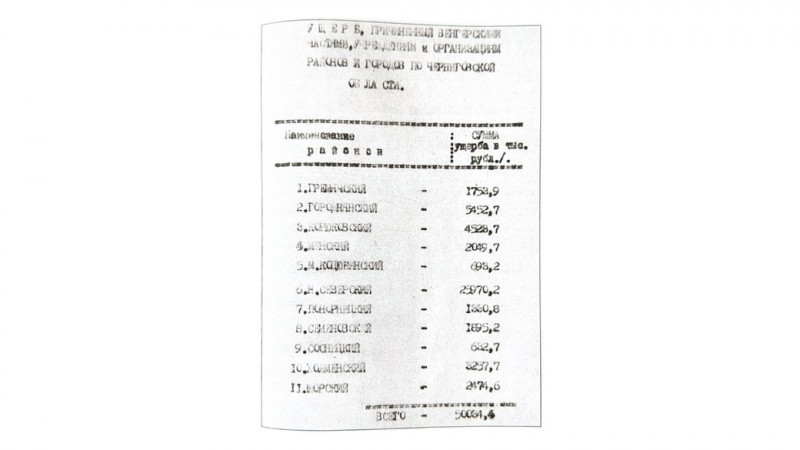 У Щ Е Р Б, ПРИЧИНЕННЫЙ ВЕНГЕРСКИМИ
ЧАСТЯМИ, УЧРЕЖДЕНИЯМ и ОРГАНИЗАЦИЯМ
РАЙОНОВ И ГОРОДОВ ПО ЧЕРНИГОВСКОЙ
ОБ ЛА СТИ.
Наименование : СУММА
р а й о н о в : ущерба в тыс.
рубл./.
1.ГРЕМЯЧСКИЙ - 1753,9
2.ГОРОДНЯНСКИЙ - 5452,7
3.КОРЮКОВСКИЙ - 4523,7
4.МЕНСКИЙ - 2049,7
5.М.КОЦЮБИНСКИЙ - 693,2
6.Н.СЕВЕРСКИЙ - 25970,2
7.ПОНОРНИЦКИЙ - 1330,8
8.СЕМЕНОВСКИЙ - 1895,2
9.СОСНИЦКИЙ - 632,7
10.ХОЛМЕНСКИЙ - 3257,7
11.БОРСКИЙ - 2474,6
ВСЕГО - 50034,4